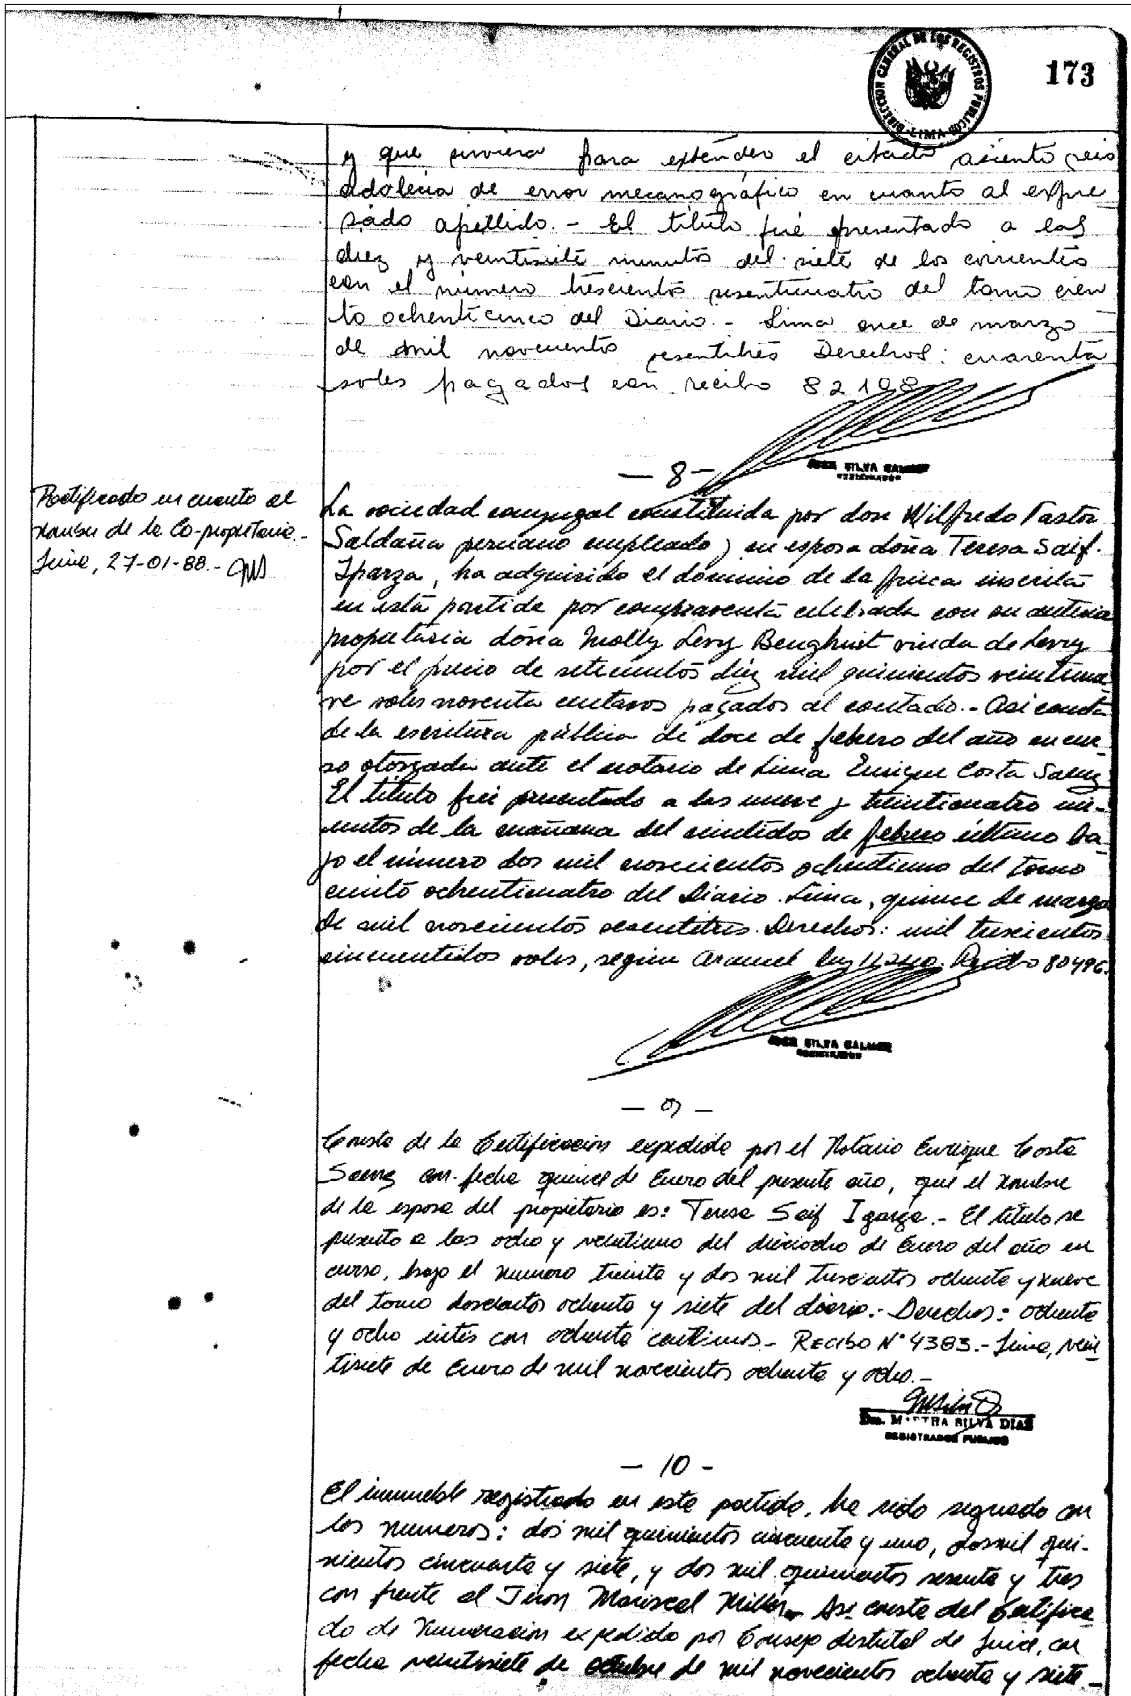 DIRECCION GENERAL DE LOS REGISTROS PUBLICOS - LIMA
173
y que sirviera para extender el citado asiento seis
adolecia de error mecanográfico en cuanto al expre
sado apellido. - El título fué presentado a las
diez y veintisiete minutos del siete de los corrientes
con el número trescientos sesenticuatro del tomo cien
to ochenticinco del Diario. - Lima once de marzo
de mil novecientos sesentitrés Derechos: cuarenta
soles pagados con recibo 82198
JOSE SILVA
REGISTRADOR
- 8 -
Rectificado en cuanto al
nombre de la Co-propietaria.-
Lima, 27-01-88.-
La sociedad conyugal constituida por don Wilfredo Pastor
Saldaña peruano empleado y su esposa doña Teresa Saif.
Iparza, ha adquirido el dominio de la finca inscrita
en esta partida por compraventa celebrada con su anterior
propietaria doña Molly Levy viuda de Levy
por el precio de setecientos diez mil quinientos veintinue
ve soles noventa centavos pagados al contado.- Asi consta
de la escritura pública de doce de febrero del año en cur-
so otorgada ante el notario de Lima Enrique Costa Saenz
El título fué presentado a las nueve y treinticuatro mi-
nutos de la mañana del veintidos de febrero último ba-
jo el número dos mil novecientos ochentiuno del tomo
ciento ochenticuatro del Diario. Lima, quince de marzo
de mil novecientos sesentitres. Derechos: mil trescientos
cincuentidos soles, según arancel ley 11240. Recibo 80496.
JOSE SILVA
REGISTRADOR
- 9 -
Consta de la Certificación expedida por el Notario Enrique Costa
Saenz con fecha quince de Enero del presente año, que el nombre
de la esposa del propietario es: Teresa Saif Igarza.- El título se
presentó a las ocho y veintiuno del dieciocho de Enero del año en
curso, bajo el numero treinta y dos mil trescientos ochenta y nueve
del tomo doscientos ochenta y siete del diario.- Derechos: ochenta
y ocho intis con ochenta centimos.- RECIBO N° 4383.- Lima, vein
tisiete de Enero de mil novecientos ochenta y ocho.-
Dra. MARTHA SILVA DIAS
REGISTRADOR PUBLICO
- 10 -
El inmueble registrado en esta partida, ha sido signado con
los numeros: dos mil quinientos cincuenta y uno, dosmil qui-
nientos cincuenta y siete, y dos mil quinientos sesenta y tres
con frente al Jiron Mariscal Miller. Asi consta del Certifica
do de Numeracion expedido por Consejo distrital de Lince, con
fecha veintisiete de octubre de mil novecientos ochenta y siete.-